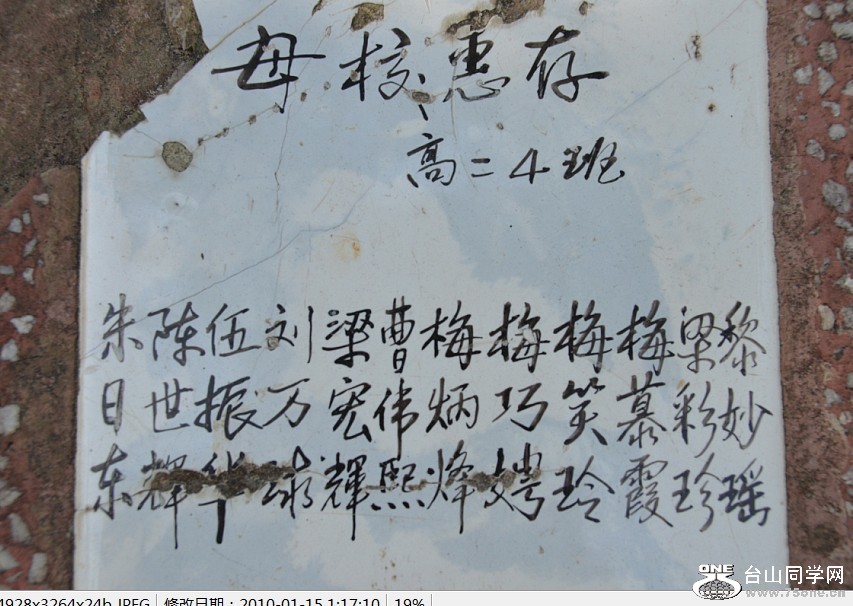 母校惠存
高二4班
朱日东
陈世辉
伍振华
刘万球
梁宏辉
曹伟熙
梅炳烽
梅巧娉
梅笑玲
梅慕霞
梁彩珍
黎妙瑶
4928x3264x24b JPEG 修改日期：2010-01-15 1:17:10 19%
ONE 台山同学网
www.75one.cn